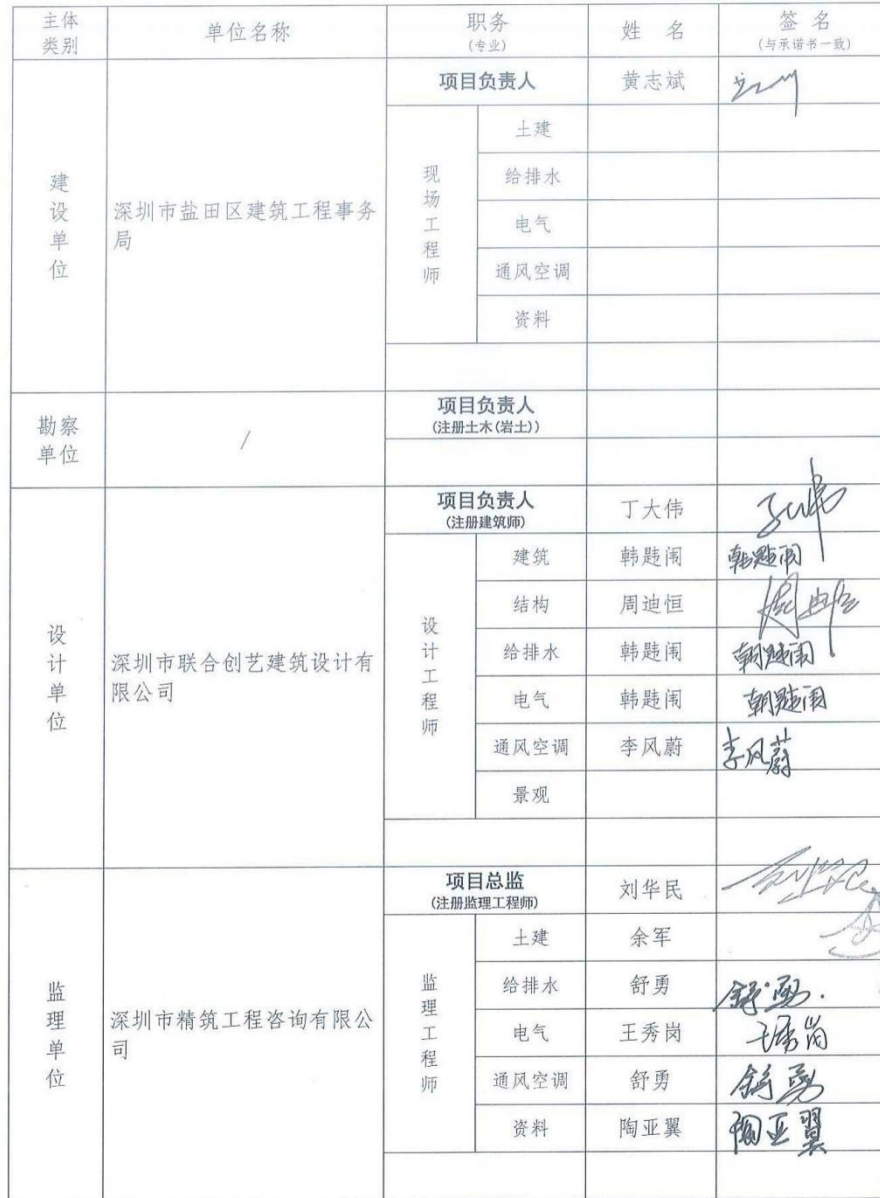 主体类别 单位名称 职务(专业) 姓 名 签 名(与承诺书一致)
建设单位 深圳市盐田区建筑工程事务局
项目负责人 黄志斌
现场工程师
土建
给排水
电气
通风空调
资料
勘察单位 /
项目负责人(注册土木(岩土))
设计单位 深圳市联合创艺建筑设计有限公司
项目负责人(注册建筑师) 丁大伟
设计工程师
建筑 韩韪闱 韩韪闱
结构 周迪恒
给排水 韩韪闱 韩韪闱
电气 韩韪闱 韩韪闱
通风空调 李风蔚 李风蔚
景观
监理单位 深圳市精筑工程咨询有限公司
项目总监(注册监理工程师) 刘华民
监理工程师
土建 余军
给排水 舒勇 舒勇
电气 王秀岗 王秀岗
通风空调 舒勇 舒勇
资料 陶亚翼 陶亚翼